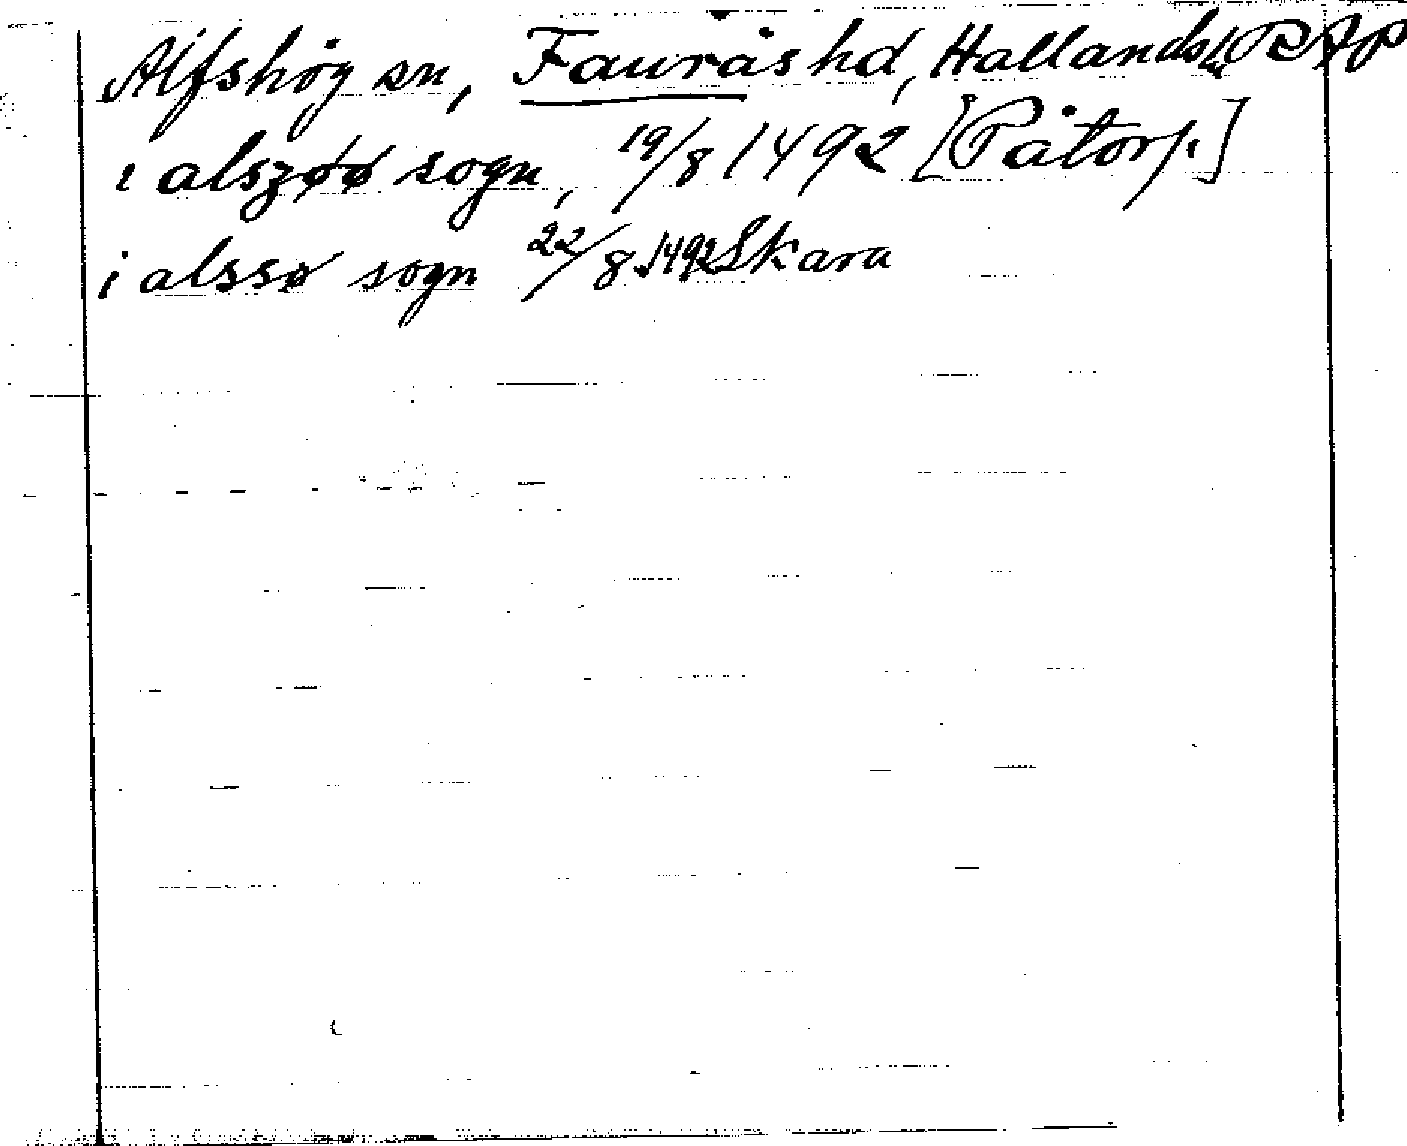 Alfshög sn, Faurås hd, Hallands l. RAP
i alszøø sogn, 19/8 1492 [Påtorp.]
i alssø sogn 22/8 1492 Skara